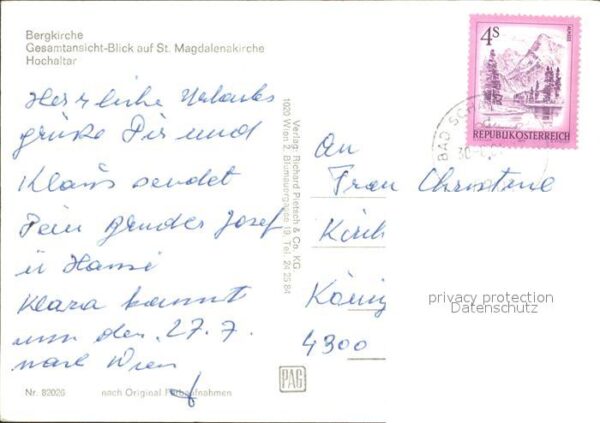 Bergkirche
Gesamtansicht-Blick auf St. Magdalenakirche
Hochaltar
Herzliche Urlaubs
grüße Dir und
Klaus sendet
Dein Bruder Josef
u Hansi
Klara kommt
um den 27.7.
nach Wien
Nr. 82026
nach Original Farbaufnahmen
Verlag: Richard Pietsch & Co. KG
1020 Wien 2, Blumauergasse 19, Tel. 24 25 84
PAG
4S
ALMSEE
REPUBLIK ÖSTERREICH
BAD
30
An
Frau Christine
Kirch
König
4300
privacy protection
Datenschutz